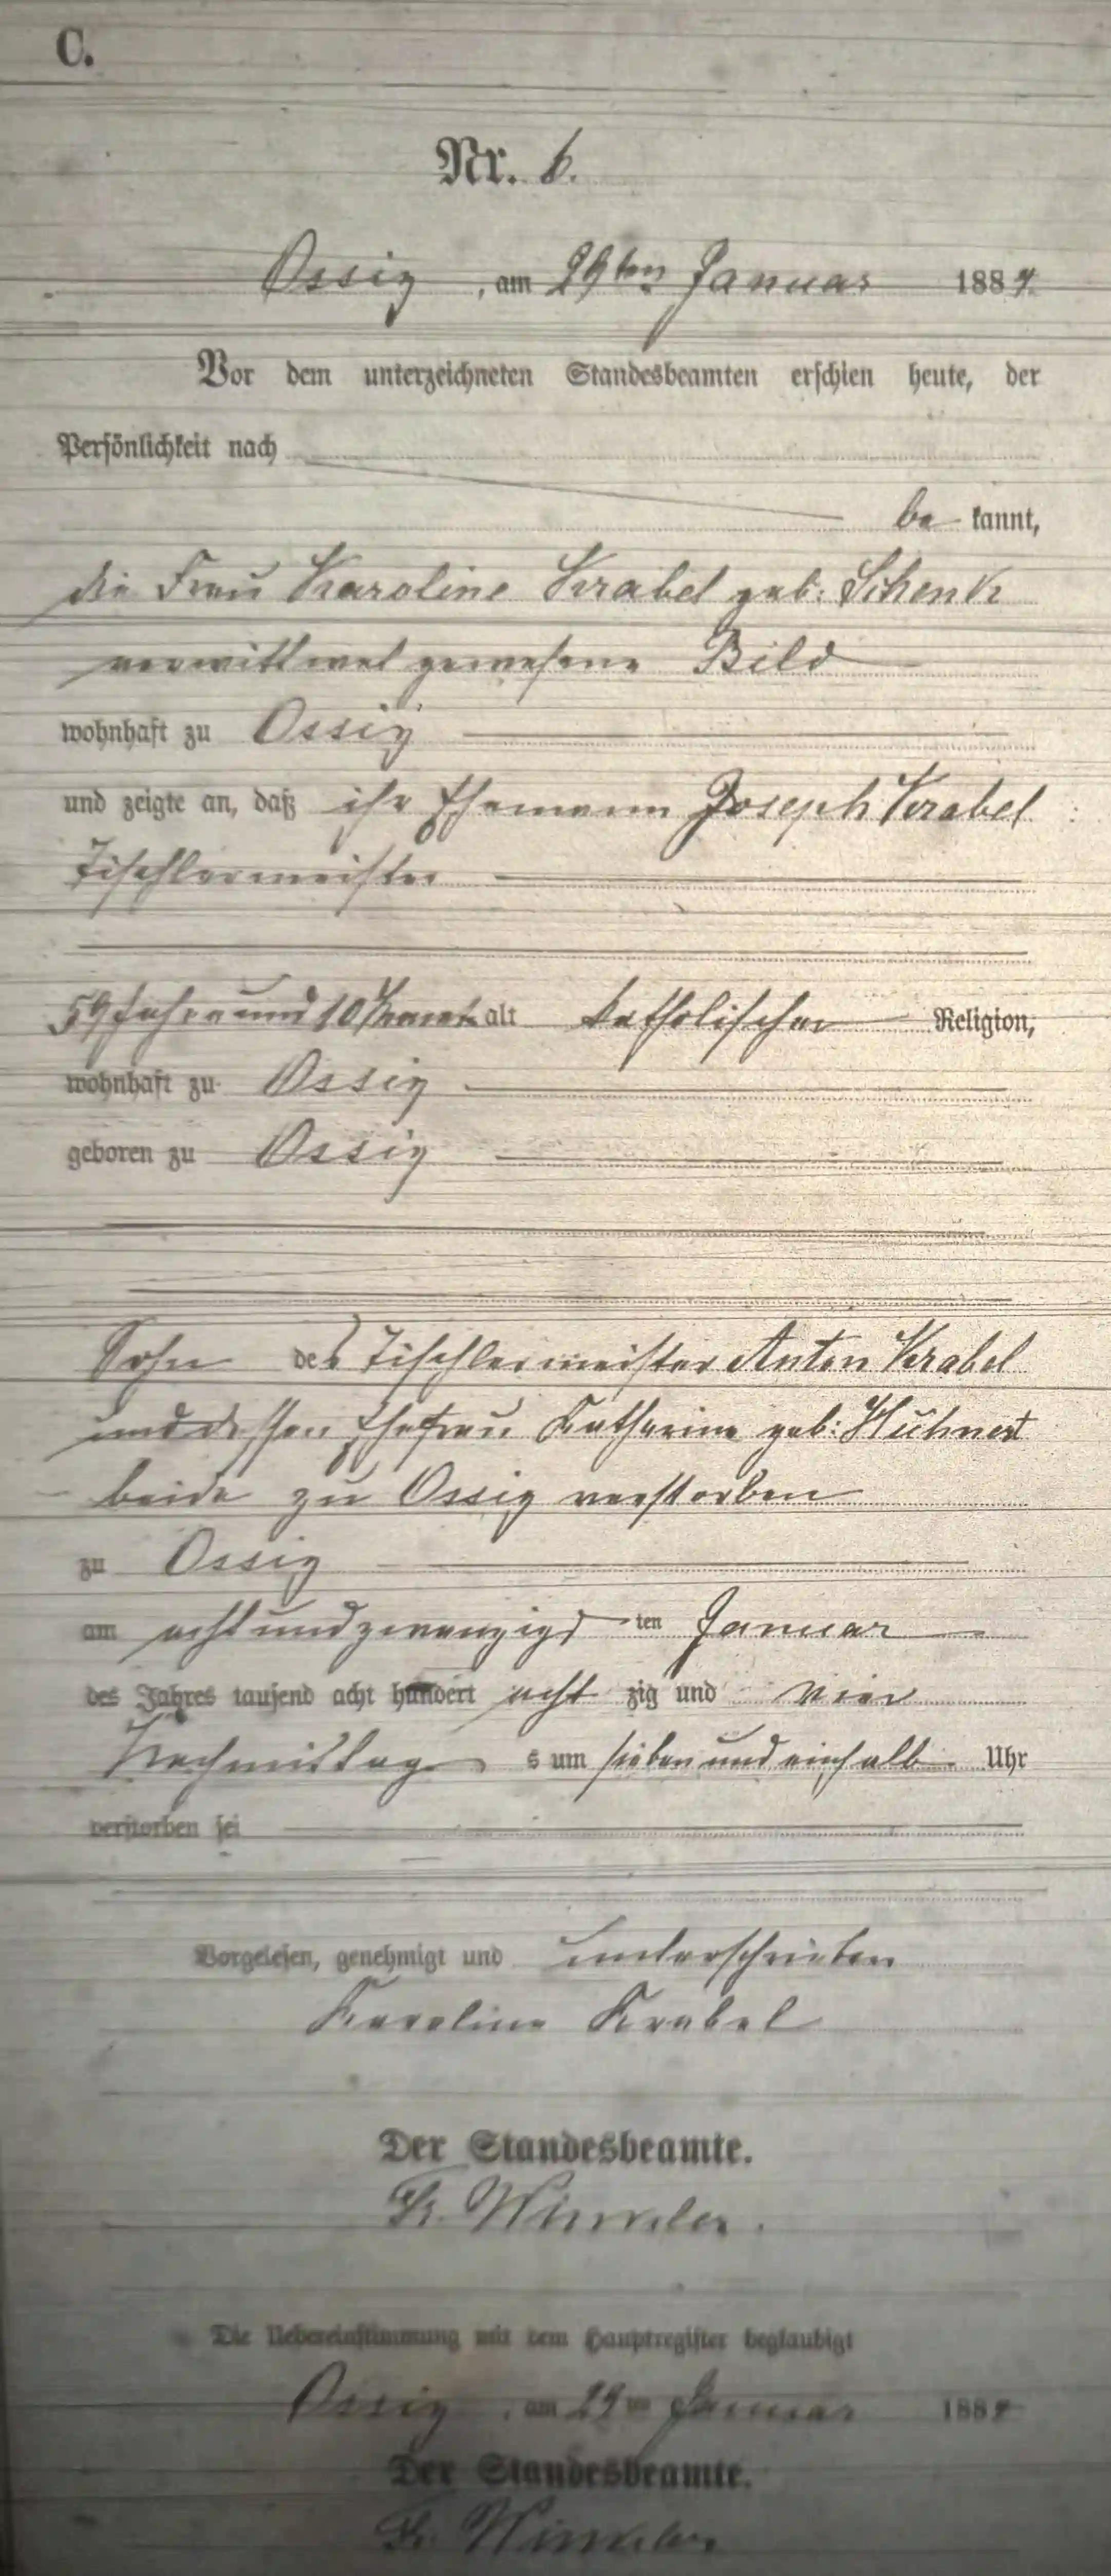 C.
Nr. 6.
Ossig, am 29ten Januar 1884.
Vor dem unterzeichneten Standesbeamten erschien heute, der
Persönlichkeit nach
bekannt,
die Frau Karoline Krabel geb: Schenk
verwittwet gewesene Bild
wohnhaft zu Ossig
und zeigte an, daß ihr Ehemann Joseph Krabel
Tischlermeister
59 Jahre und 10 Monat alt katholischer Religion,
wohnhaft zu Ossig
geboren zu Ossig
Sohn des Tischlermeister Anton Krabel
und dessen Ehefrau Katharine geb: Hühnert
beide zu Ossig verstorben
zu Ossig
am achtundzwanzigsten Januar
des Jahres tausend acht hundert achtzig und vier
Nachmittags um sieben und einhalb Uhr
verstorben sei
Vorgelesen, genehmigt und unterschrieben
Karoline Krabel
Der Standesbeamte.
Winkler.
Die Uebereinstimmung mit dem Hauptregister beglaubigt
Ossig, am 29ten Januar 1884
Der Standesbeamte.
Winkler